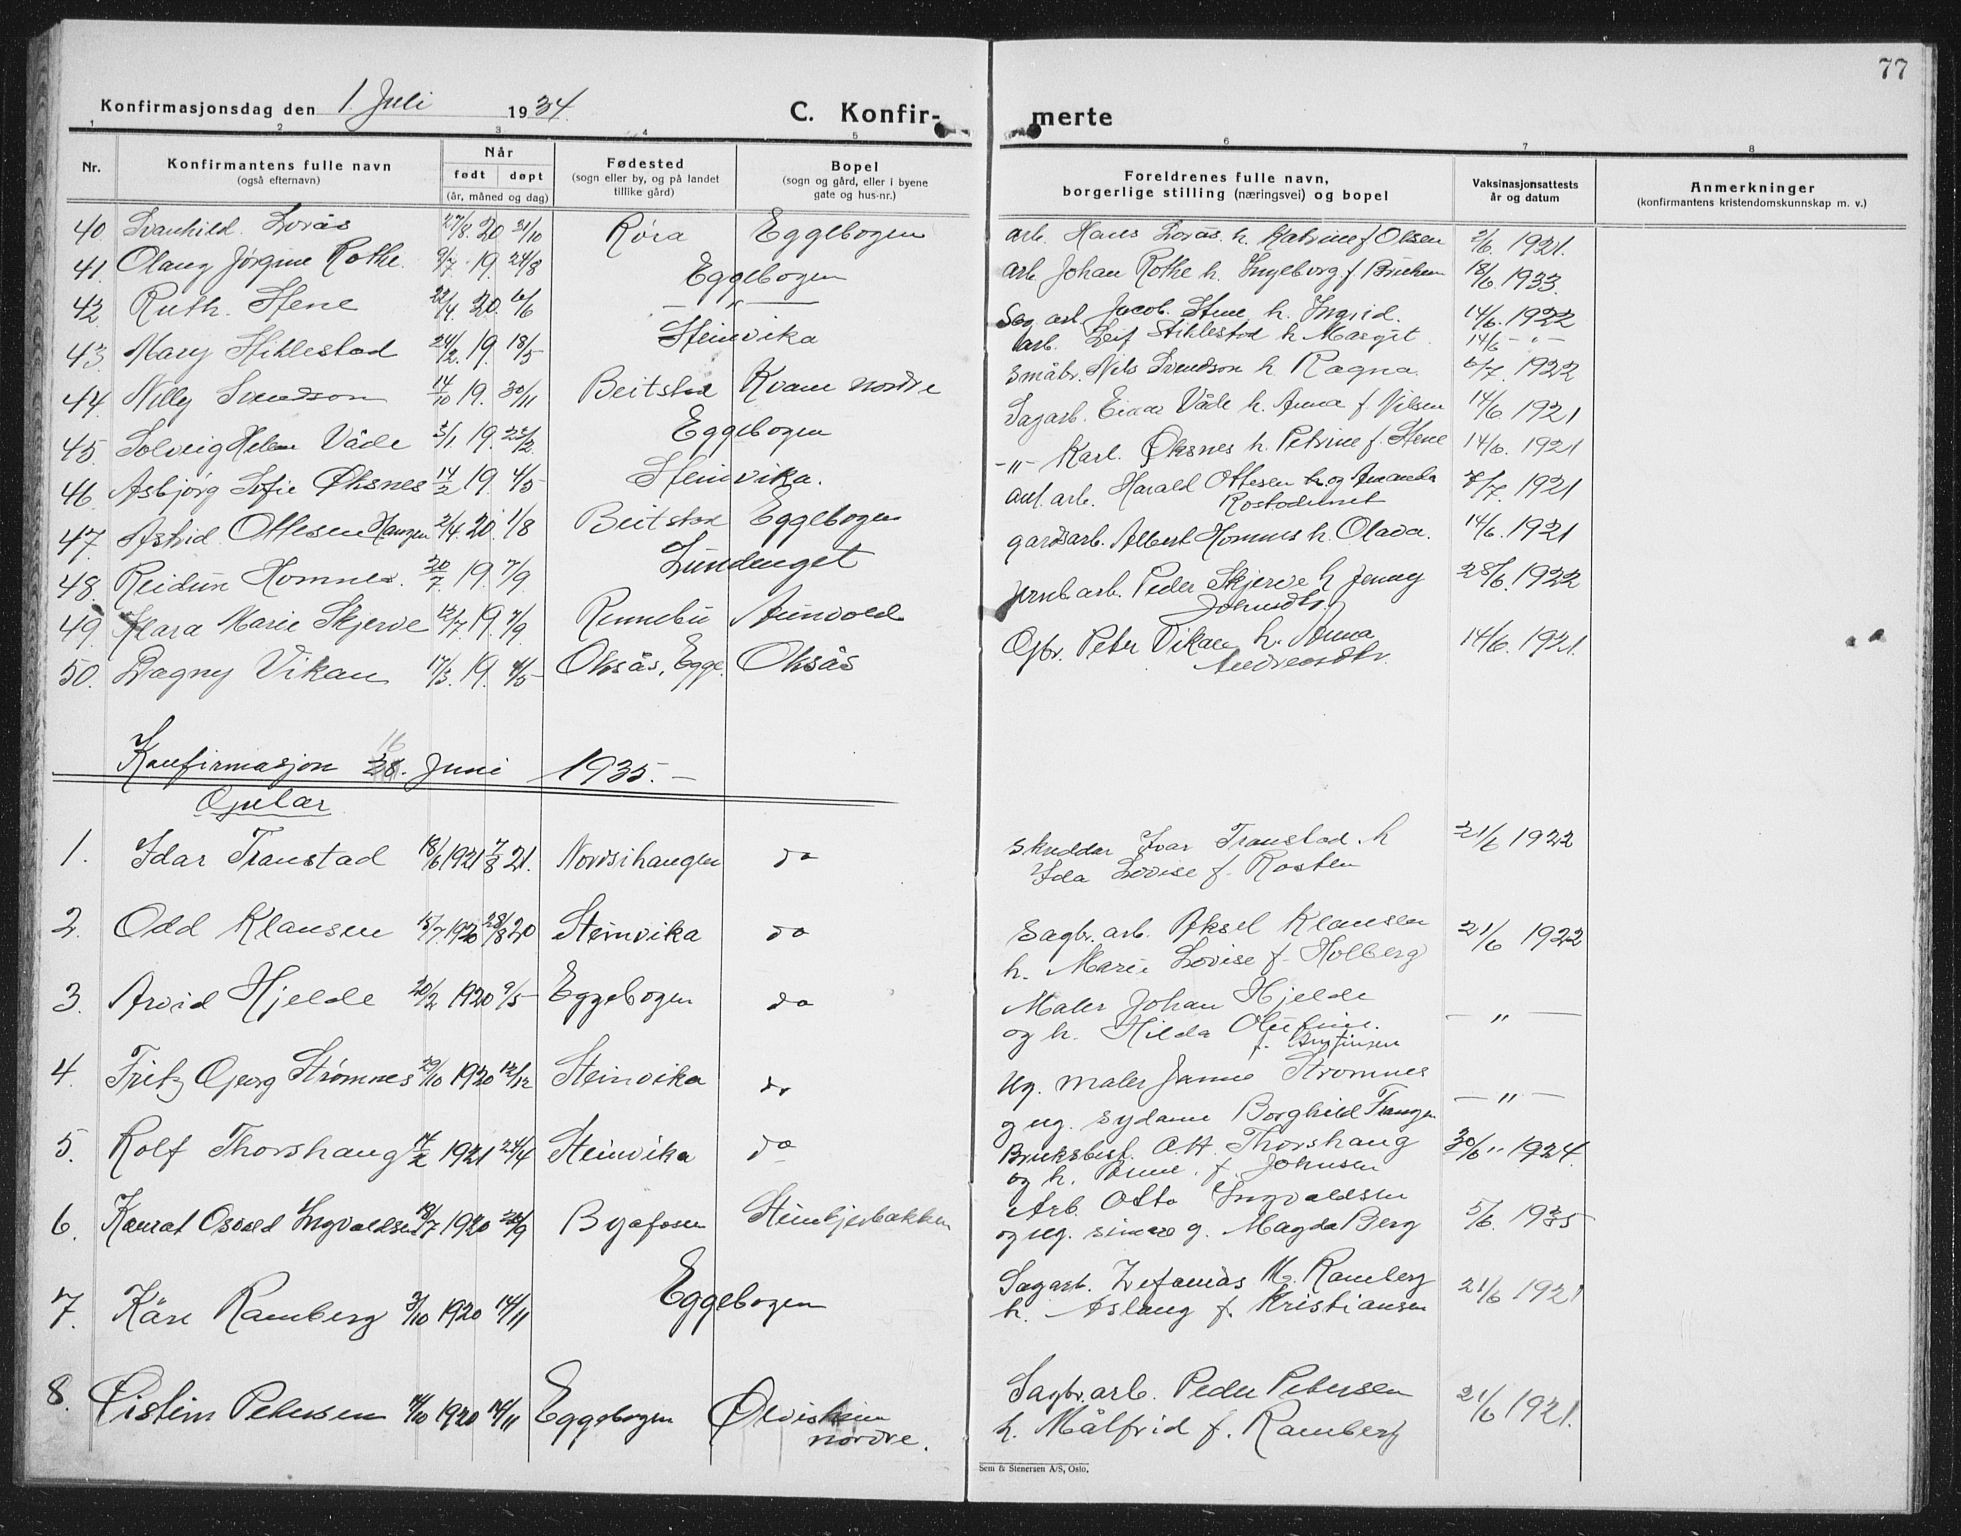 77
Konfirmasjonsdag den 1. Juli 1934.
C. Konfir-
merte
1 2 3 4 5 6 7 8
Nr.
Konfirmantens fulle navn
(også efternavn)
Når
født døpt
(år, måned og dag)
Fødested
(sogn eller by, og på landet
tillike gård)
Bopel
(sogn og gård, eller i byene
gate og hus-nr.)
Foreldrenes fulle navn,
borgerlige stilling (næringsvei) og bopel
Vaksinasjonsattests
år og datum
Anmerkninger
(konfirmantens kristendomskunnskap m. v.)
40. Svanhild Lorås 27/8 20 31/10 Røra Eggebogen arb. Hans Lorås h. Katrine f Olsen 2/6 1921.
41. Olaug Jørgine Rothe. 9/7 19. 24/8 Eggebogen arb. Johan Rothe h. Ingeborg f. 18/6 1933.
42. Ruth Stene 22/4 20. 6/6 — " — Sag arb. Jacob Stene h. Ingrid. 14/6 1922
43. Mary Stiklestad 24/2 19. 18/5 Steinvika arb. Leif Stiklestad h. Margit. 14/6 - " -
44. Nilly Svendson 14/10 19. 30/11 Beitstad Kvam nordre Småbr. Nils Svendson h. Ragna. 6/7 1922
45. Solveig Helene Våde 3/1 19. 23/2 Eggebogen Sagarb. Einar Våde h. Anna f. Nilsen 14/6 1921
46. Asbjørg Sofie Øksnes 14/2 19. 4/5 Steinvika. -"- Karl Øksnes h. Petrine f. Stene 14/6. 1921
47. Astrid Ottesen Haugen 2/4. 20. 1/8 Beitstad Eggebogen anl. arb. Harald Ottesen h. og Amanda 7/7 1921
48. Reidun Homnes. 20/7 19. 7/9 Lundenget gardsarb. Albert Homnes h. Olava. 14/6. 1921
49. Klara Marie Skjerve 12/7 19. 7/9 Rennebu Aunvold Jernb. arb. Peder Skjerve h. Jenny 28/6. 1922
50. Dagny Vikan 17/3 19. 4/5 Oksås, Egge. Oksås Gbr. Peter Vikan h. Anna 14/6. 1921.
Konfirmasjon 16. Juni 1935.-
Gutar
1. Idar Transtad 18/6 1921 7/8 21. Nordsihaugen do Skreddar Ivar Transtad. h 21/6 1922
Ida Lovise f. Rosten
2. Odd Klausen 15/7 1920 28/8 20 Steinvika do Sagbr. arb. Aksel Klausen 21/6 1922
h. Marie Lovise f. Holberg
3. Arvid Hjelde 20/2 1920 9/5 Eggebogen do Maler Johan Hjelde — " —
og h. Hilda Olufine.
4. Fritz Georg Strømnes 29/10 1920 12/12 Steinvika do Ug. maler Janne Strømnes — " —
og ug. sydame Borghild
5. Rolf Thorshaug 14/2 1921 24/4 Steinvika do Bruksbest. O. H. Thorshaug 30/6 " 1924.
og h. Anne. f. Johnsen
6. Konrat Osvald Ingvaldsen 18/7 1920 26/9 Byafossen Steinkjerbakken Arb. Otto Ingvaldsen 5/6. 1935
og ug. Magda Berg
7. Kåre Ramberg 3/10 1920 14/11 Eggebogen Sagarb. Zefanias M. Ramberg 21/6 1921
h. Aslaug f. Kristiansen
8. Øistein Petersen 14/10 1920 14/11 Eggebogen Ølvisheim nordre. Sagbr. arb. Peder Petersen 21/6 1921.
h. Målfrid f. Ramberg
Sem & Stenersen A/S, Oslo.